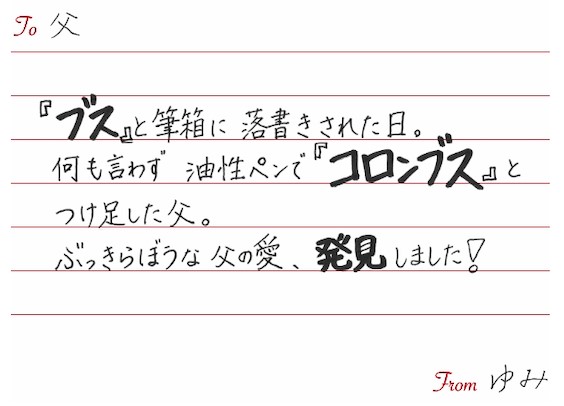 To 父
『ブス』と筆箱に 落書きされた日。
何も言わず 油性ペンで『コロンブス』と
つけ足した父。
ぶっきらぼうな 父の愛、発見しました!
From ゆみ